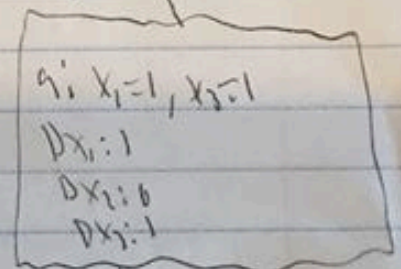 a: x₁=1, x₃=1
Dx₁: 1
Dx₂: 0
Dx₃: 1